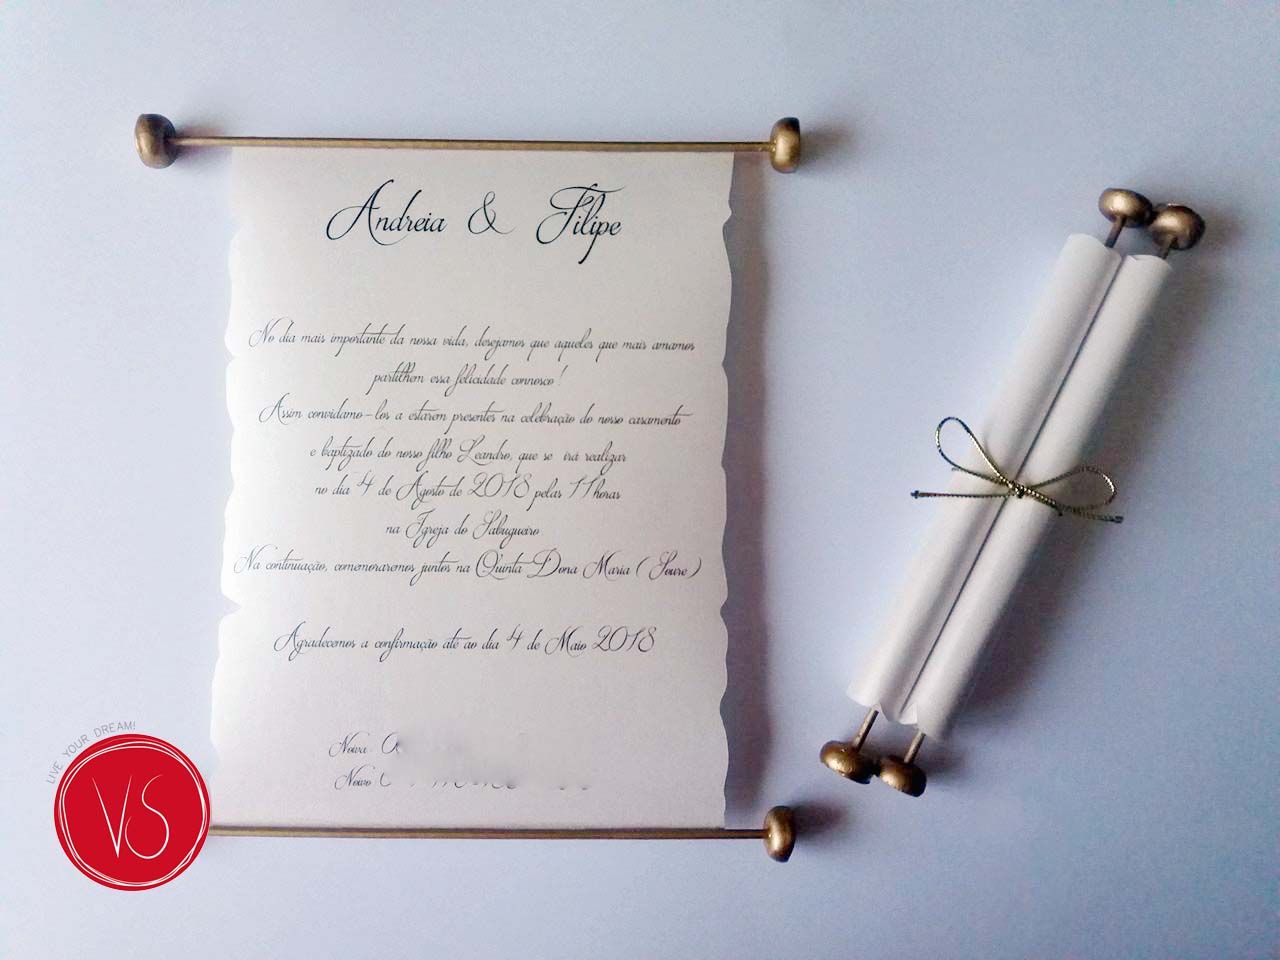 Andreia & Filipe
No dia mais importante da nossa vida, desejamos que aqueles que mais amamos
partilhem essa felicidade connosco!
Assim convidamo-los a estarem presentes na celebração do nosso casamento
e baptizado do nosso filho Leandro, que se irá realizar
no dia 4 de Agosto de 2018 pelas 11horas
na Igreja do Sabugueiro
Na continuação, comemoraremos juntos na Quinta Dona Maria (Soure)
Agradecemos a confirmação até ao dia 4 de Maio 2018
Noiva:
Noivo
LIVE YOUR DREAM!
VS